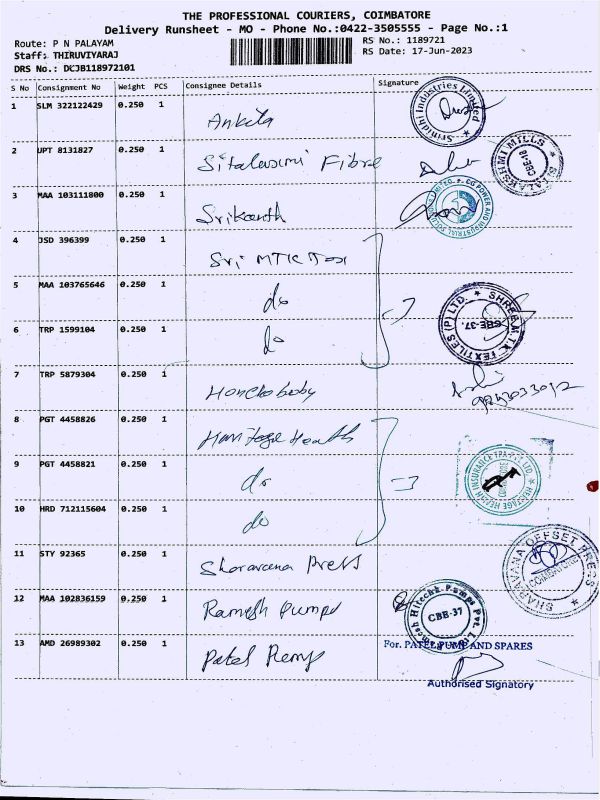 THE PROFESSIONAL COURIERS, COIMBATORE
Delivery Runsheet - MO - Phone No.:0422-3505555 - Page No.:1
Route: P N PALAYAM
RS No.: 1189721
Staff: THIRUVIYARAJ
RS Date: 17-Jun-2023
DRS No.: DCJB118972101
S No Consignment No Weight PCS Consignee Details Signature
1 SLM 322122429 0.250 1 Ankita
Srinidhi Industries Limited
2 UPT 8131827 0.250 1 Sitalaxmi Fibre
SITALAKSHMI MILLS CBE-18
3 MAA 103111800 0.250 1 Srikanth
CG POWER AND INDUSTRIAL SOLUTIONS LIMITED
4 JSD 396399 0.250 1 Sri MTK Tex
5 MAA 103765646 0.250 1 do
SHREE M.T.K. TEXTILES (P) LTD. CBE-37.
6 TRP 1599104 0.250 1 do
7 TRP 5879304 0.250 1
8 PGT 4458826 0.250 1 Heritage Health
9 PGT 4458821 0.250 1 do
HERITAGE HEALTH INSURANCE TPA PVT. LTD.
10 HRD 712115604 0.250 1 do
11 STY 92365 0.250 1 Sharavana Press
SHARAVANA OFFSET PRESS COIMBATORE
12 MAA 102836159 0.250 1 Ramesh Pumps
Hitech Pumps Pvt. Ltd. CBE-37
13 AMD 26989302 0.250 1 Patel Pemp
For. PATEL PUMP AND SPARES
Authorised Signatory